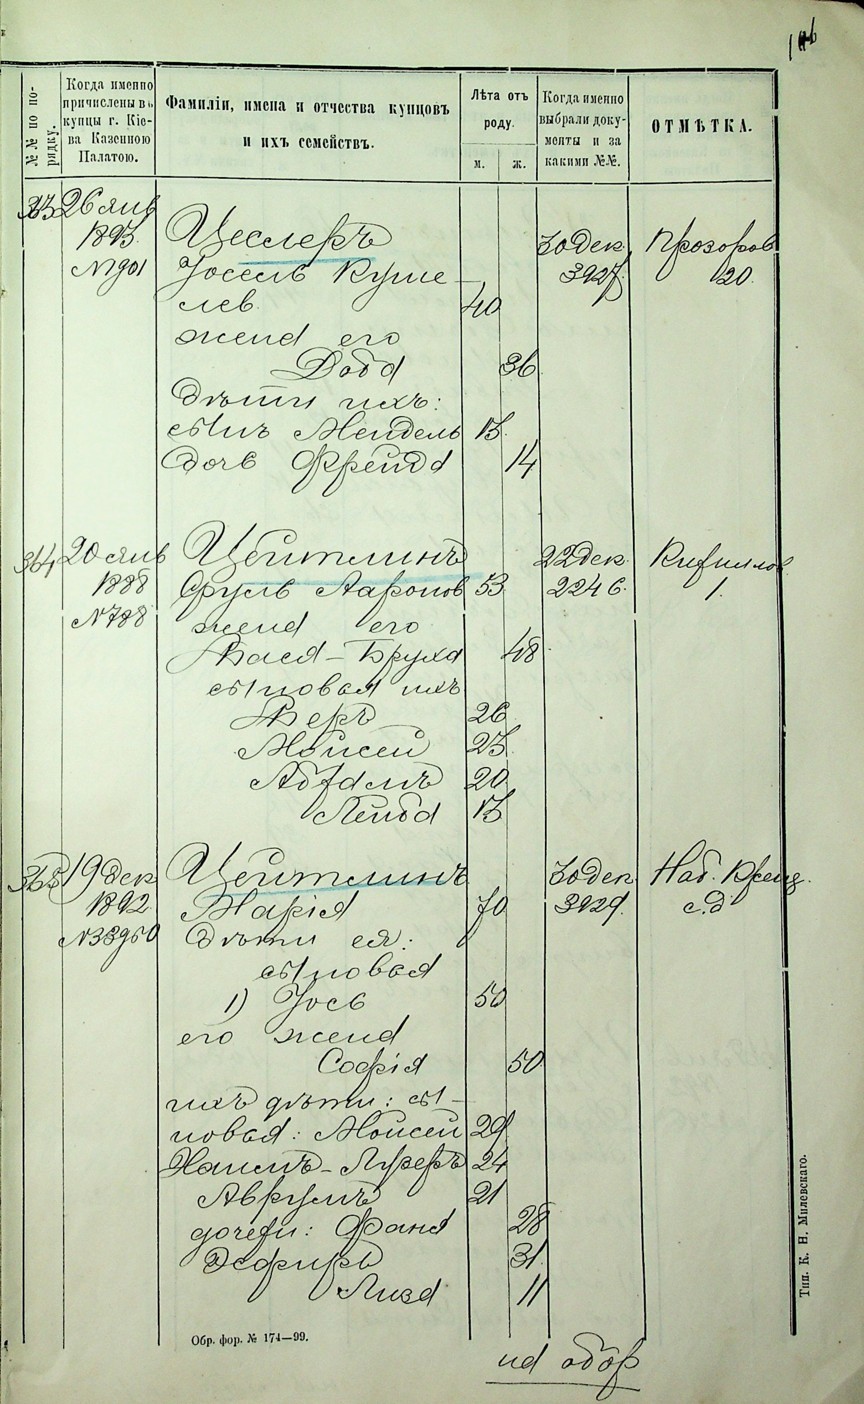 №№ по по-
рядку.
Когда именно
причислены въ
купцы г. Кіе-
ва Казенною
Палатою.
Фамиліи, имена и отчества купцовъ
и ихъ семействъ.
Лѣта отъ
роду.
м.
ж.
Когда именно
выбрали доку-
менты и за
какими №№.
ОТМѢТКА.
26 янв
1893
№ 901
Цеслеръ
Іосель Куше
лев
40
30 дек
3927
Прозоров
20.
жена его
Доба
36
дѣти ихъ:
сынъ Мендель 13.
дочь Фрейда 14
364
20 янв
1888
№ 788
Цейтлинъ
Сруль Ааронов 53
22 дек
2246
Кирилов
1.
жена его
Вася-Бруха 48
сыновья ихъ
Беръ 26
Мойсей 23.
Абрамъ 20
Лейба 13
365
19 дек
1892
№ 33950
Цейтлинъ
Марія 70
30 дек
3929.
Наб. Крещ.
с.д
дѣти ея:
сыновья
1) Іось 50
его жена
Софія 50
ихъ дѣти: сы-
новья: Мойсей 29
Хаимъ-Лузеръ 24
Аврумъ 21
дочери: Фаня 28
Эсфирь 31
Лиза 11
Обр. фор. № 174—99.
на обор
Тип. К. Н. Милевскаго.